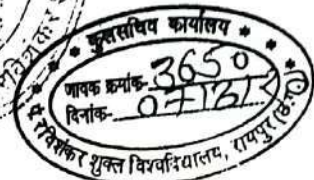 कुलसचिव कार्यालय
जावक क्रमांक- 3650
दिनांक-
पं. रविशंकर शुक्ल विश्वविद्यालय, रायपुर (छ.ग.)